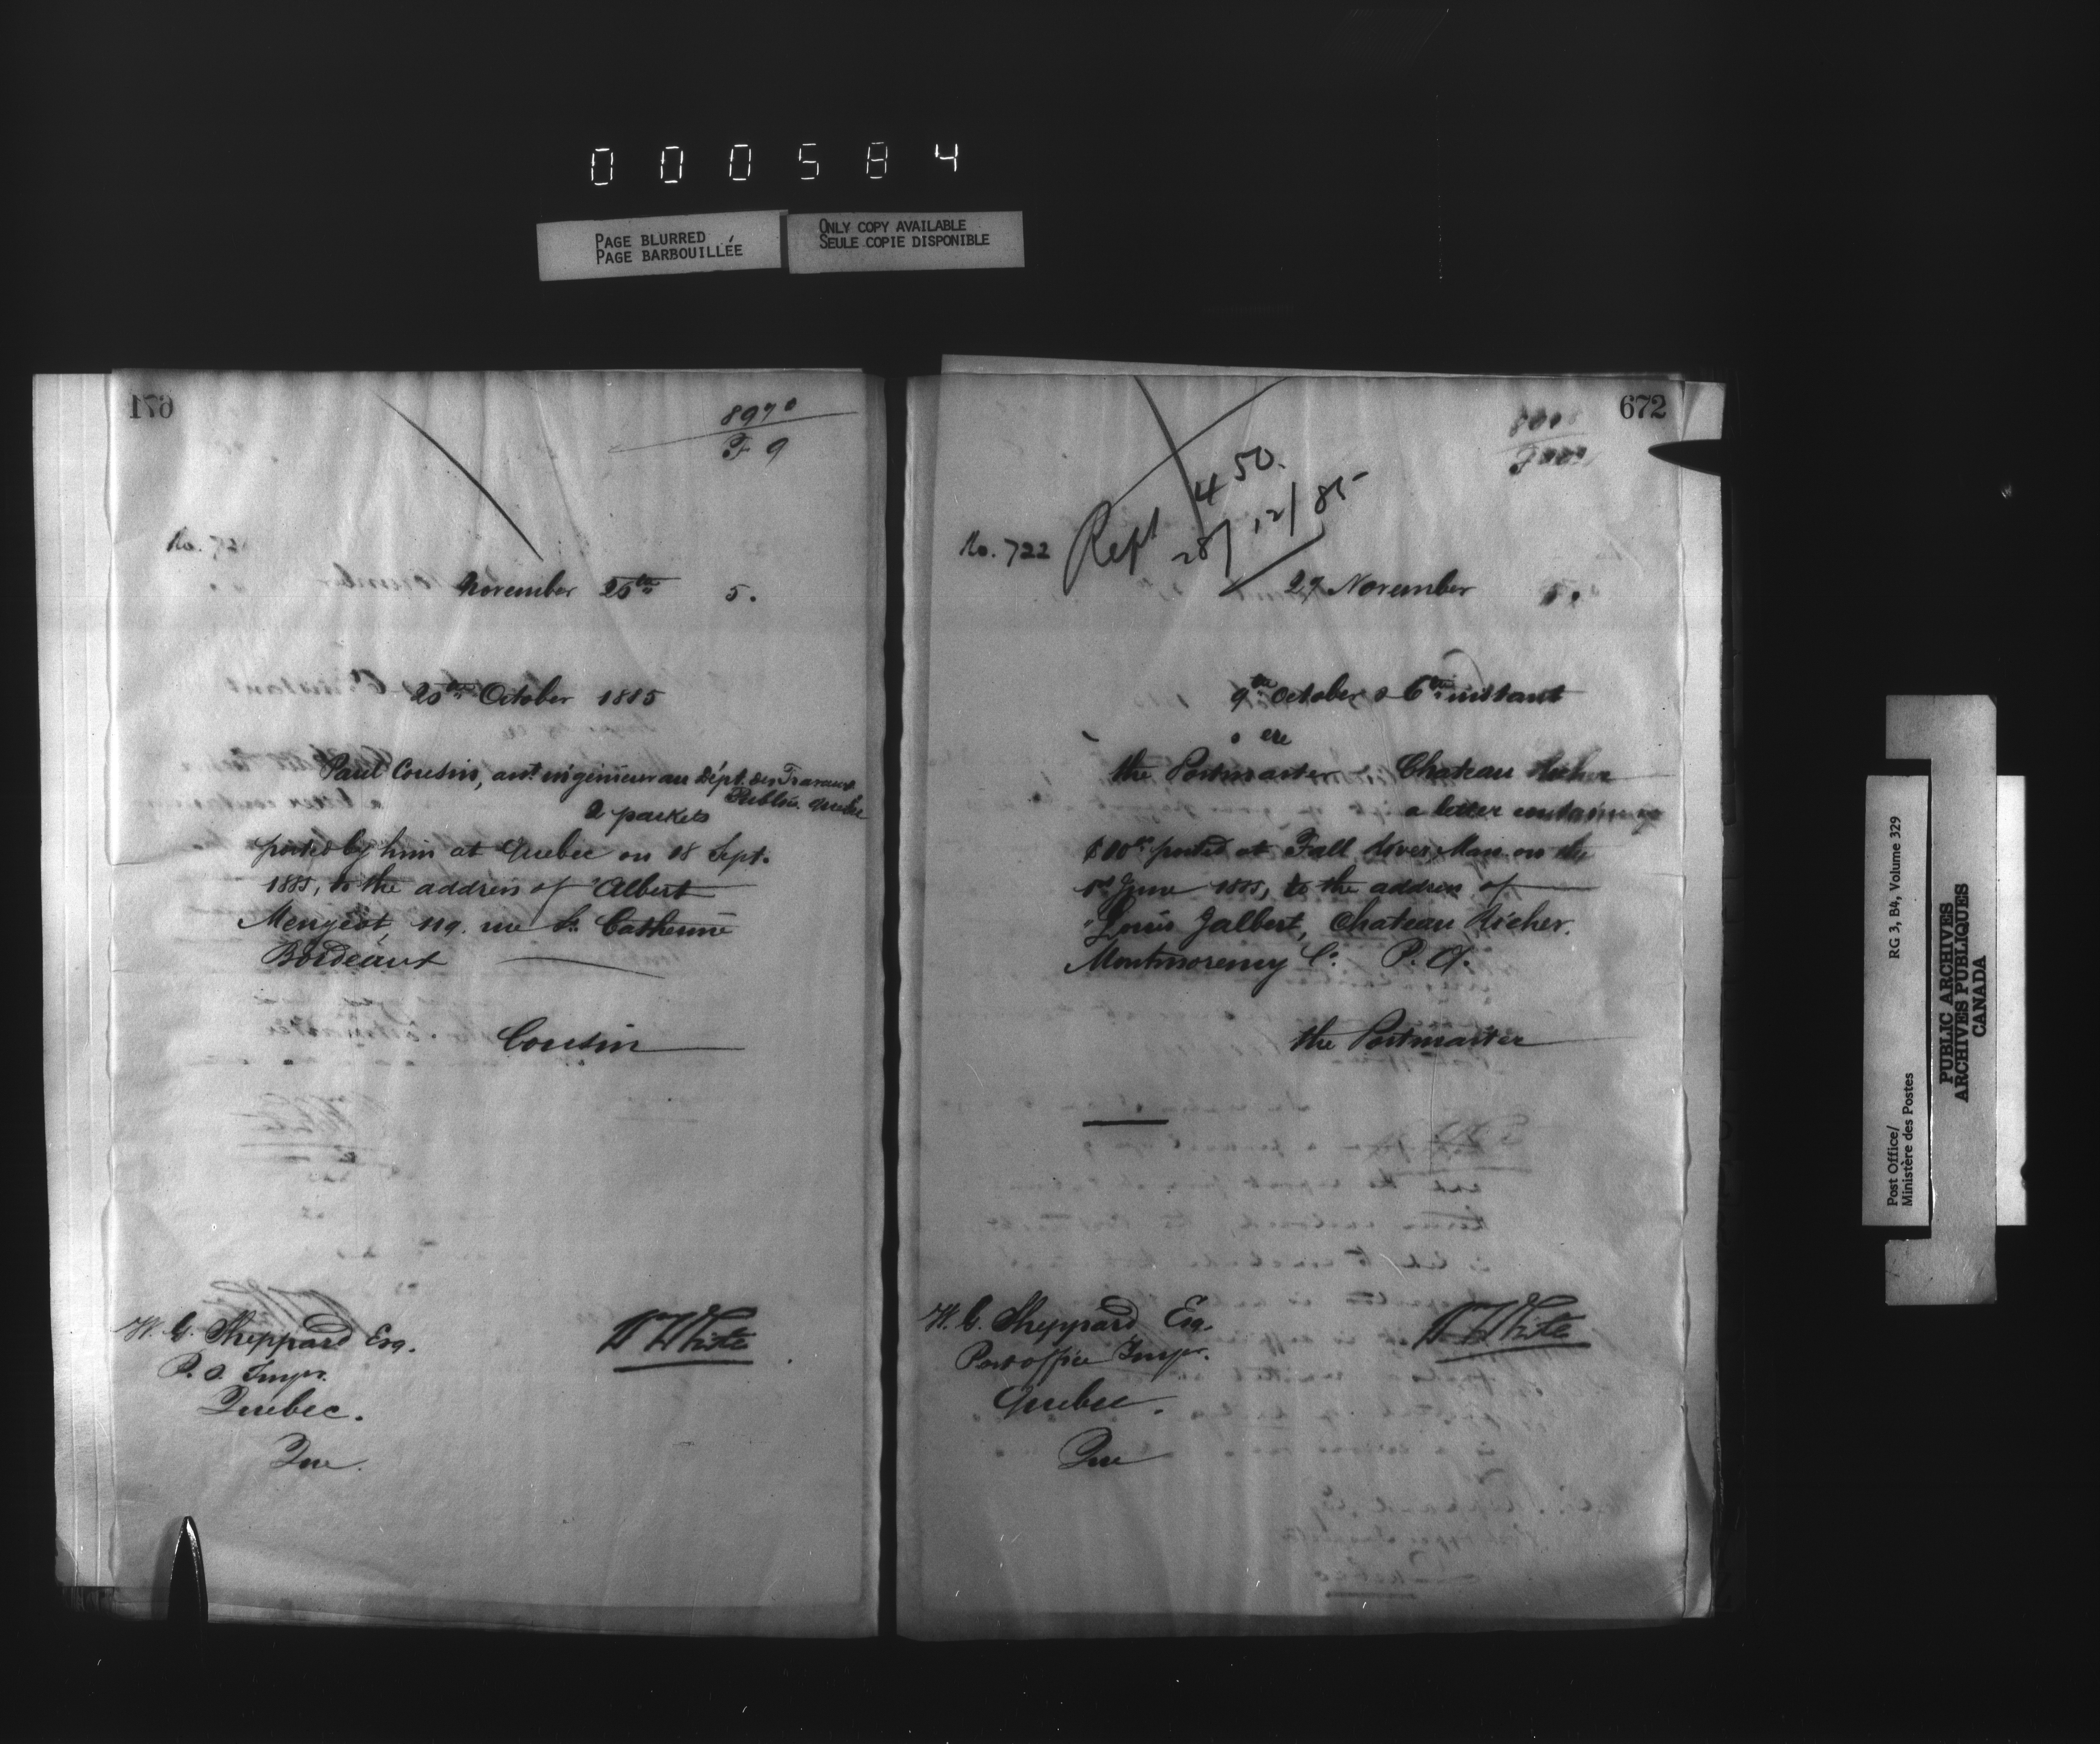 000584
PAGE BLURRED
PAGE BARBOUILLÉE
ONLY COPY AVAILABLE
SEULE COPIE DISPONIBLE
671
8970
F 9
No. 72
November 25th 5.
20th October 1885
Paul Cousin, ast ingenieur au Dépt. des Travaux
Publics. Quebec
2 packets
posted by him at Quebec on 18 Sept.
1885, to the address of "Albert
Mengeot, 119. rue St. Catherine
Bordeaux
Cousin
W. G. Sheppard Esq.
P. O. Inspr.
Quebec.
Que.
W White
672
Rept 450.
28/12/85
No. 722
27 November 5.
9th October & 6th instant
ere
the Postmaster Chateau Richer
a letter containing
posted at Fall River, Mass on the
June 1885, to the address of
"Louis Jalbert, Chateau Richer.
Montmorency Co. P. Q.
the Postmaster
W. G. Sheppard Esq.
Post office Inspr.
Quebec.
Que
W White
Post Office/
Ministère des Postes
RG 3, B4, Volume 329
PUBLIC ARCHIVES
ARCHIVES PUBLIQUES
CANADA